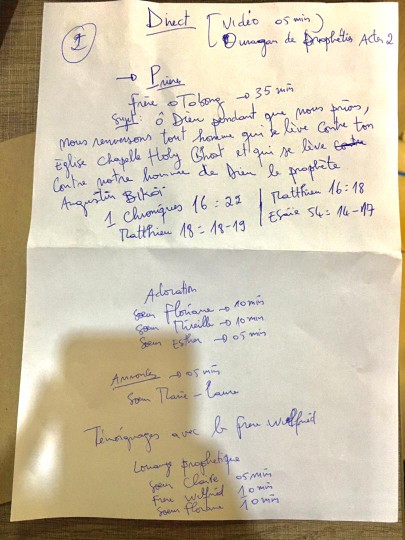 1
Direct [ Vidéo 05 min )
Ouragan de Prophéties Actes 2
→ Prière
Frère Tobong → 35 min
Sujet : ô Dieu pendant que nous prions,
nous renversons tout homme qui se lève contre ton
Église Chapelle Holy Ghost et qui se lève contre
contre notre homme de Dieu le prophète
Augustin
1 Chroniques 16 : 22 | Matthieu 16 : 18
Matthieu 18 : 18-19 | Esaie 54 : 14-17
Adoration
Sœur Floriane → 10 min
Sœur Mireille → 10 min
Sœur Esther → 05 min
Annonces → 05 min
Sœur Marie-Laure
Témoignages avec le frère Wilfried
Louange prophétique
Sœur Claire 05 min
Frère Wilfried 10 min
Sœur Floriane 10 min